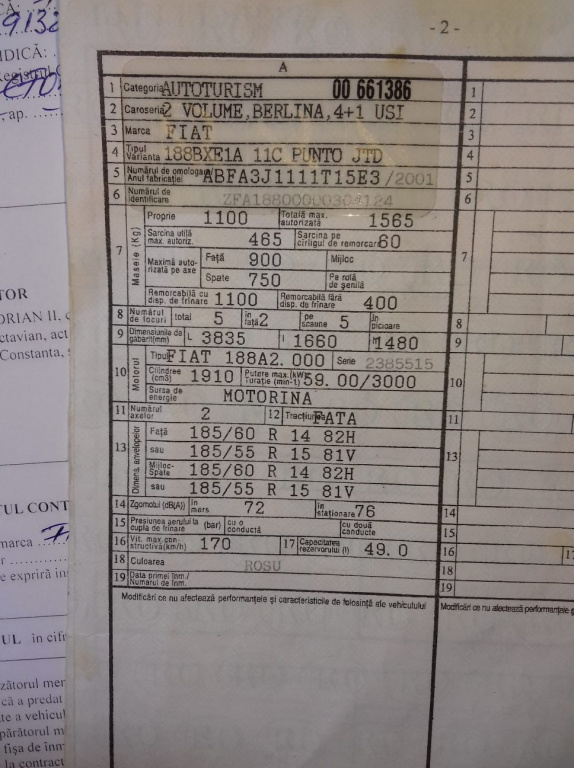 - 2 -
9.132
IDICĂ:
A
1 Categoria AUTOTURISM 00 661386
2 Caroseria 2 VOLUME,BERLINA,4+1 USI
3 Marca FIAT
4 Tipul Varianta 188BXE1A 11C PUNTO JTD
5 Numărul de omologare Anul fabricaţiei ABFA3J1111T15E3/2001
6 Numărul de identificare
7 Masele (Kg)
Proprie 1100 Totală max. autorizată 1565
Sarcina utilă max. autoriz. 465 Sarcina pe cîrligul de remorcare 60
Maximă autorizată pe axe Faţă 900 Mijloc
Spate 750 Pe rolă de şenilă
Remorcabilă cu disp. de frînare 1100 Remorcabilă fără disp. de frînare 400
8 Număr de locuri total 5 în faţă 2 pe scaune 5 în picioare
9 Dimensiunile de gabarit(mm) L 3835 l 1660 H 1480
10 Motorul
Tipul FIAT 188A2. 000 Serie 2385515
Cilindree (cm3) 1910 Putere max.(kW) Turaţie (min-1) 59. 00/3000
Sursa de energie MOTORINA
11 Numărul axelor 2 12 Tracţiunea FATA
13 Dimens. anvelopelor
Faţă 185/60 R 14 82H
sau 185/55 R 15 81V
Mijloc-Spate 185/60 R 14 82H
sau 185/55 R 15 81V
14 Zgomotul (dB(A)) în mers 72 în staţionare 76
15 Presiunea aerului la cupla de frînare (bar) cu o conductă cu două conducte
16 Vit. max. constructivă(km/h) 170 17 Capacitatea rezervorului (l) 49. 0
18 Culoarea ROSU
19 Data primei înm./ Numărul de înm.
Modificări ce nu afectează performanţele şi caracteristicile de folosinţă ale vehiculului
1
2
3
4
5
6
7
8
9
10
11
13
14
15
16
18
19
Modificări ce nu afectează performanţele ş
ap.
TOR
DRIAN II,
ctavian, act
Constanta,
TUL CONT
marca
e expriră in
UL în cifr
zătorul mer
că a predat
te a vehicul
părătorul m
fişa de înm
la contract